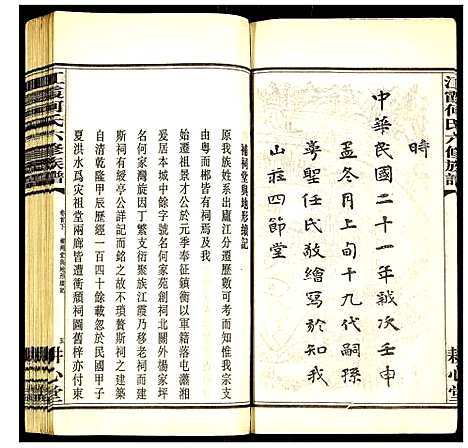 江霞何氏六修族譜
時
中華民國二十一年歲次壬申
孟冬月上旬十九代嗣孫
專聖任氏敬繪寫於知我
山莊四節堂
耕心堂
補祠堂與地形續記
原我族姓系出廬江分遷歷數可考而知惟我宗支
始遷祖景才公於元季奉征鎮衡以軍籍落屯瀟湘
由粵而郴皆有祠焉及我
何家灣旋因丁繁支衍聚族江霞乃移老祠於此斯
名何家园本城中餘字號何家苑創立北關外楊家坪
斯祠有綬亭公詳記而余故不瑣贅斯祠之建築
自清乾隆甲辰歷經一百四十餘載忽於民國甲子
夏洪水爲灾祖堂兩廊皆遭衝頹祠圖舊梓亦付東
江霞何氏六修族譜
卷首下
五
耕心堂